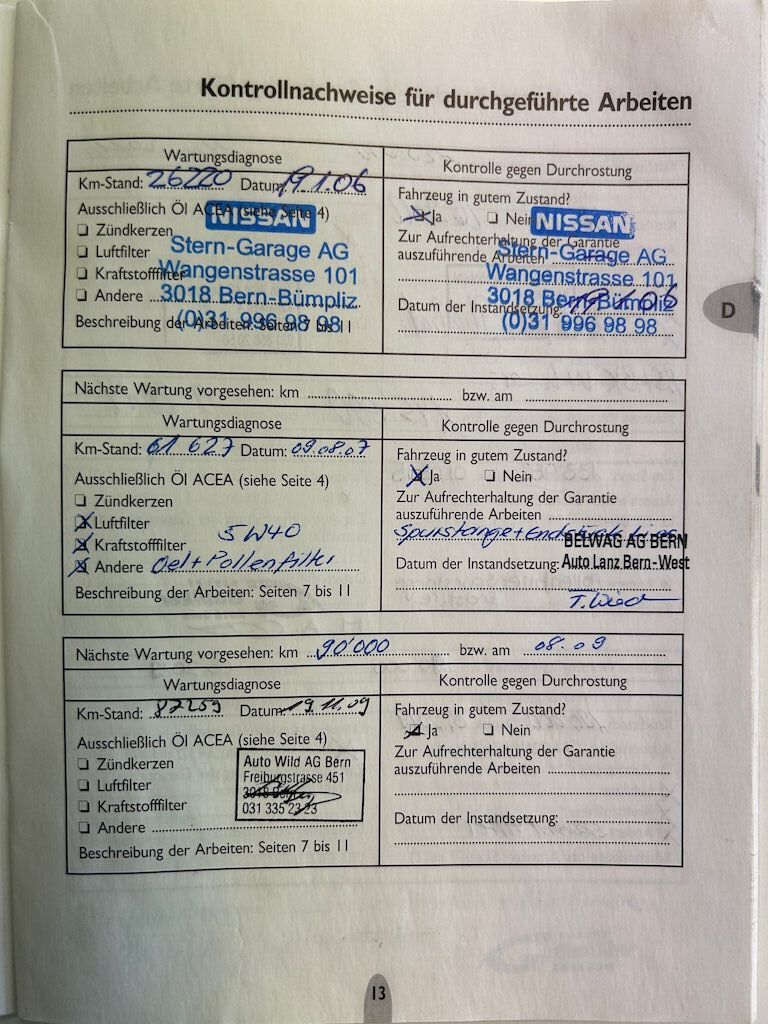 Kontrollnachweise für durchgeführte Arbeiten
Wartungsdiagnose
Km-Stand: 26220 Datum: 19.1.06
Ausschließlich Öl ACEA (siehe Seite 4)
Zündkerzen
Luftfilter
Kraftstofffilter
Andere
Beschreibung der Arbeiten: Seiten 7 bis 11
NISSAN
Stern-Garage AG
Wangenstrasse 101
3018 Bern-Bümpliz
(0)31 996 98 98
Kontrolle gegen Durchrostung
Fahrzeug in gutem Zustand?
Ja Nein
Zur Aufrechterhaltung der Garantie
auszuführende Arbeiten
Datum der Instandsetzung: 19.1.06
NISSAN
Stern-Garage AG
Wangenstrasse 101
3018 Bern-Bümpliz
(0)31 996 98 98
D
Nächste Wartung vorgesehen: km bzw. am
Wartungsdiagnose
Km-Stand: 61 627 Datum: 09.08.07
Ausschließlich Öl ACEA (siehe Seite 4)
Zündkerzen
Luftfilter
Kraftstofffilter 5W40
Andere Oel + Pollenfilter
Beschreibung der Arbeiten: Seiten 7 bis 11
Kontrolle gegen Durchrostung
Fahrzeug in gutem Zustand?
Ja Nein
Zur Aufrechterhaltung der Garantie
auszuführende Arbeiten
Spurstange + Endstück
BELWAG AG BERN
Datum der Instandsetzung: Auto Lanz Bern-West
Nächste Wartung vorgesehen: km 90'000 bzw. am 08.09
Wartungsdiagnose
Km-Stand: 87259 Datum: 19.11.09
Ausschließlich Öl ACEA (siehe Seite 4)
Zündkerzen
Luftfilter
Kraftstofffilter
Andere
Beschreibung der Arbeiten: Seiten 7 bis 11
Auto Wild AG Bern
Freiburgstrasse 451
3018
031 335 23 23
Kontrolle gegen Durchrostung
Fahrzeug in gutem Zustand?
Ja Nein
Zur Aufrechterhaltung der Garantie
auszuführende Arbeiten
Datum der Instandsetzung:
13